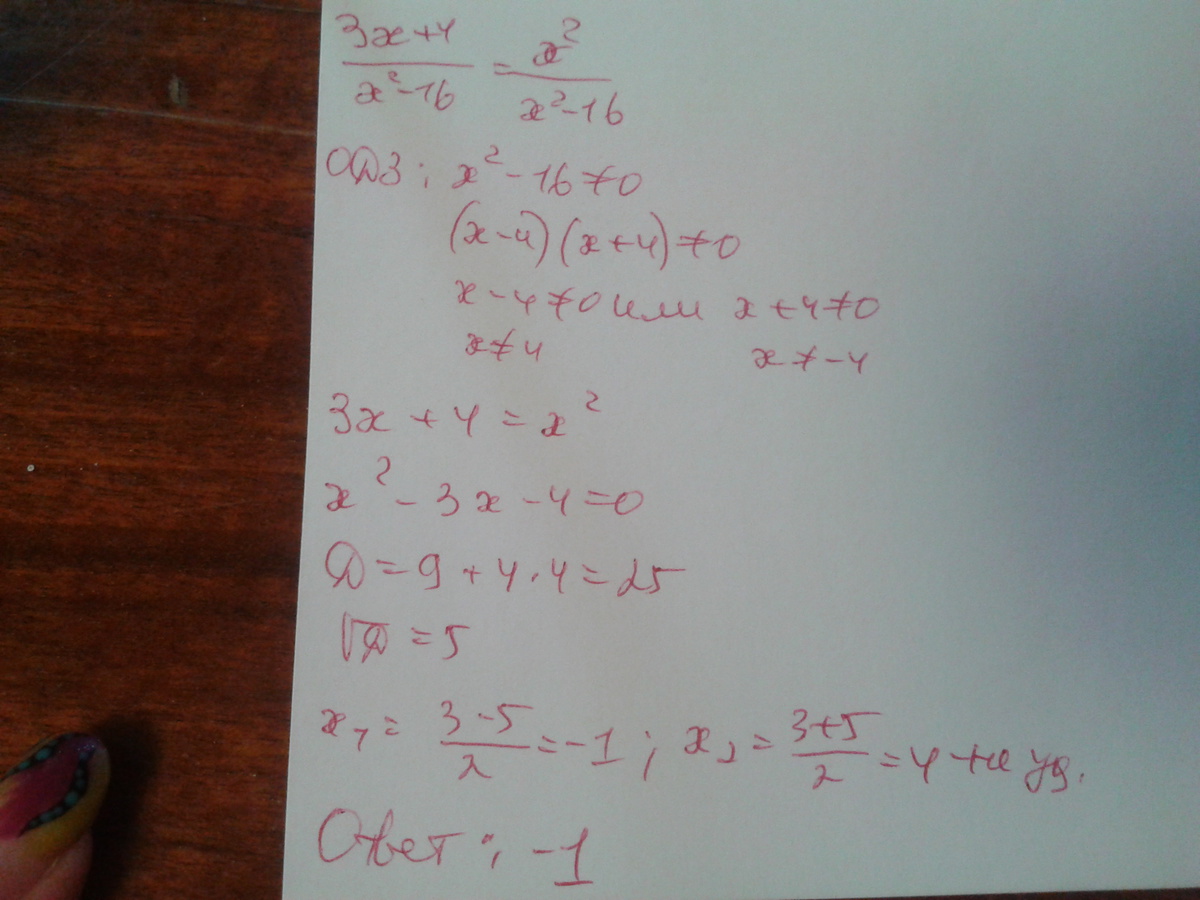 3x+4/x²-16 = x²/x²-16
ОДЗ: x²-16≠0
(x-4)(x+4)≠0
x-4≠0 или x+4≠0
x≠4 x≠-4
3x+4=x²
x²-3x-4=0
D=9+4·4=25
√D=5
x₁=3-5/2=-1; x₂=3+5/2=4 не уд.
Ответ: -1